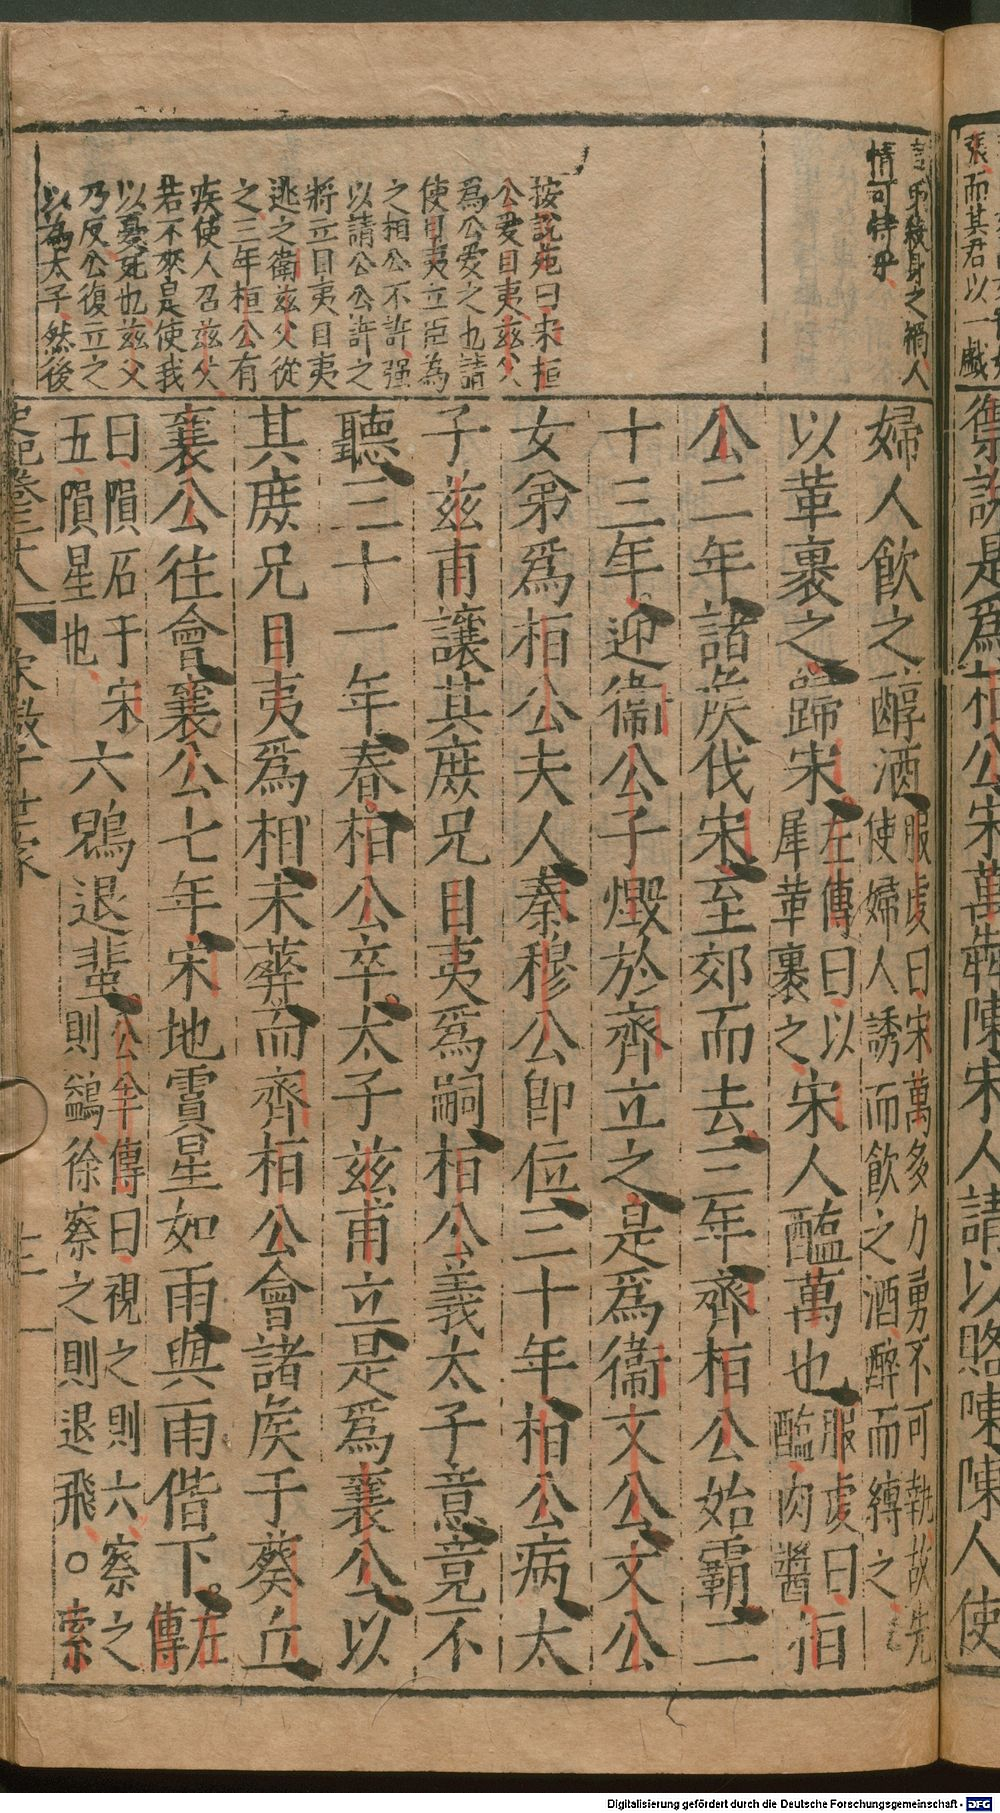 張而其君以一戲
御景說是爲桓公宋萬犇陳宋人請以賂陳陳人使
言以殺身之禍人
情可恃乎
婦人飲之醇酒服虔曰宋萬多力勇不可執故先使婦人誘而飲之酒醉而縛之
以革裹之歸宋左傳曰以犀革裹之宋人醢萬也服虔曰醢肉醬栢
公二年諸矦伐宋至郊而去三年齊栢公始霸二
十三年迎衞公子燬於齊立之是爲衞文公文公
女弟爲栢公夫人秦穆公卽位三十年栢公病太
子兹甫讓其庶兄目夷爲嗣栢公義太子意竟不
聽三十一年春栢公卒太子兹甫立是爲襄公以
其庶兄目夷爲相未葬而齊栢公會諸矦于葵丘
襄公往會襄公七年宋地霣星如雨與雨偕下左傳
曰隕石于宋五隕星也六鶂退蜚公羊傳曰視之則六察之則鷁徐察之則退飛○索
按說苑曰宋桓
公愛目夷兹父
爲公愛之也請
使目夷立臣爲
之相公不許强
以請公公許之
將立目夷目夷
逃之衞兹父從
之三年桓公有
疾使人召兹父
若不來是使我
以憂死也兹父
乃反公復立之
以為太子然後
史記卷三十八 宋微子世家 十二
Digitalisierung gefördert durch die Deutsche Forschungsgemeinschaft - DFG